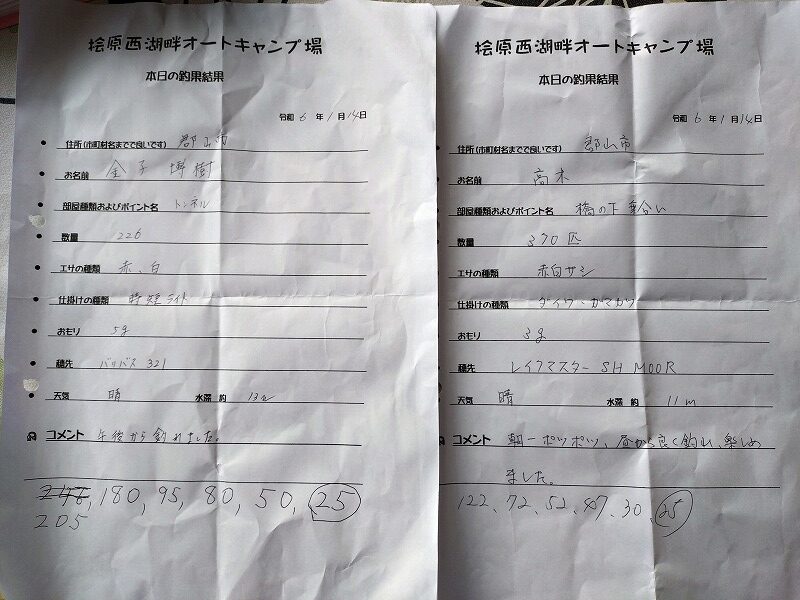 桧原西湖畔オートキャンプ場
本日の釣果結果
令和 6 年 1 月 14日
住所(市町村名までで良いです) 郡山市
お名前 金子 博樹
部屋種類およびポイント名 トンネル
数量 226
エサの種類 赤、白
仕掛けの種類 時短ライト
おもり 5g
穂先 バリバス 321
天気 晴 水深 約 13m
コメント 午後から釣れました。
246, 180, 95, 80, 50, 25
205
桧原西湖畔オートキャンプ場
本日の釣果結果
令和 6 年 1 月 14日
住所(市町村名までで良いです) 郡山市
お名前 高木
部屋種類およびポイント名 橋の下乗合い
数量 370匹
エサの種類 赤白サシ
仕掛けの種類 ダイワ・ガマカツ
おもり 3g
穂先 レイクマスター SH M00R
天気 晴 水深 約 11m
コメント 朝一ポツポツ、昼から良く釣れ、楽しめ
ました。
122、72、52、47、30、25